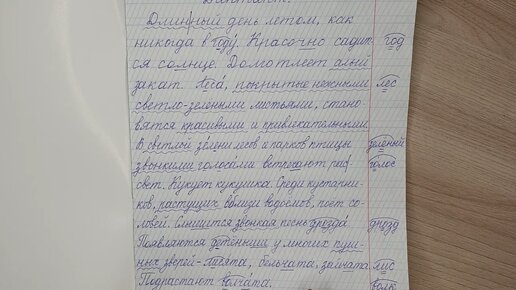 Диктант.
Длинный день летом, как
никогда в году. Красочно садит- год
ся солнце. Долго тлеет алый
закат. Леса, покрытые нежными лес
светло-зелеными листьями, стано-
вятся красивыми и привлекательными.
В светлой зелени лесов и парков птицы зеленый
звонкими голосами встречают рас- голос
свет. Кукует кукушка. Среди кустарни-
ков, растущих вблизи водоёмов, поёт со-
ловей. Слышится звонкая песнь дрозда. дрозд
Появляются детеныши у многих пуш-
ных зверей-лисята, бельчата, зайчата. лис
Подрастают волчата. волк